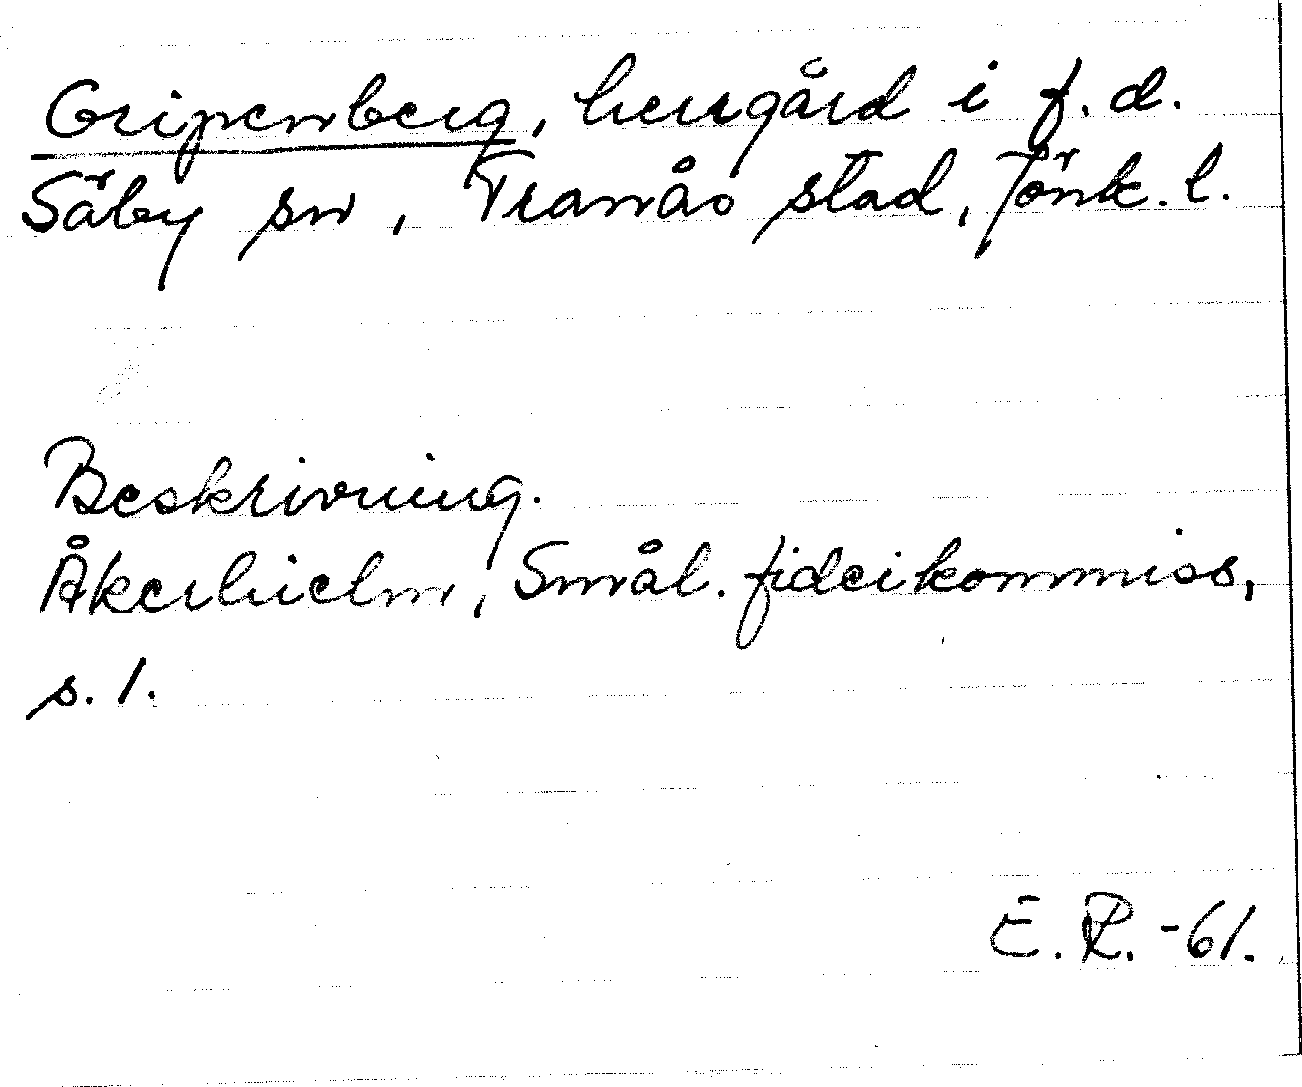 Gripenberg, herrgård i f.d.
Säby sn, Tranås stad, Jönk. l.
Beskrivning.
Åkerhielm, Smål. fideikommiss,
s. 1.
E. R. -61.